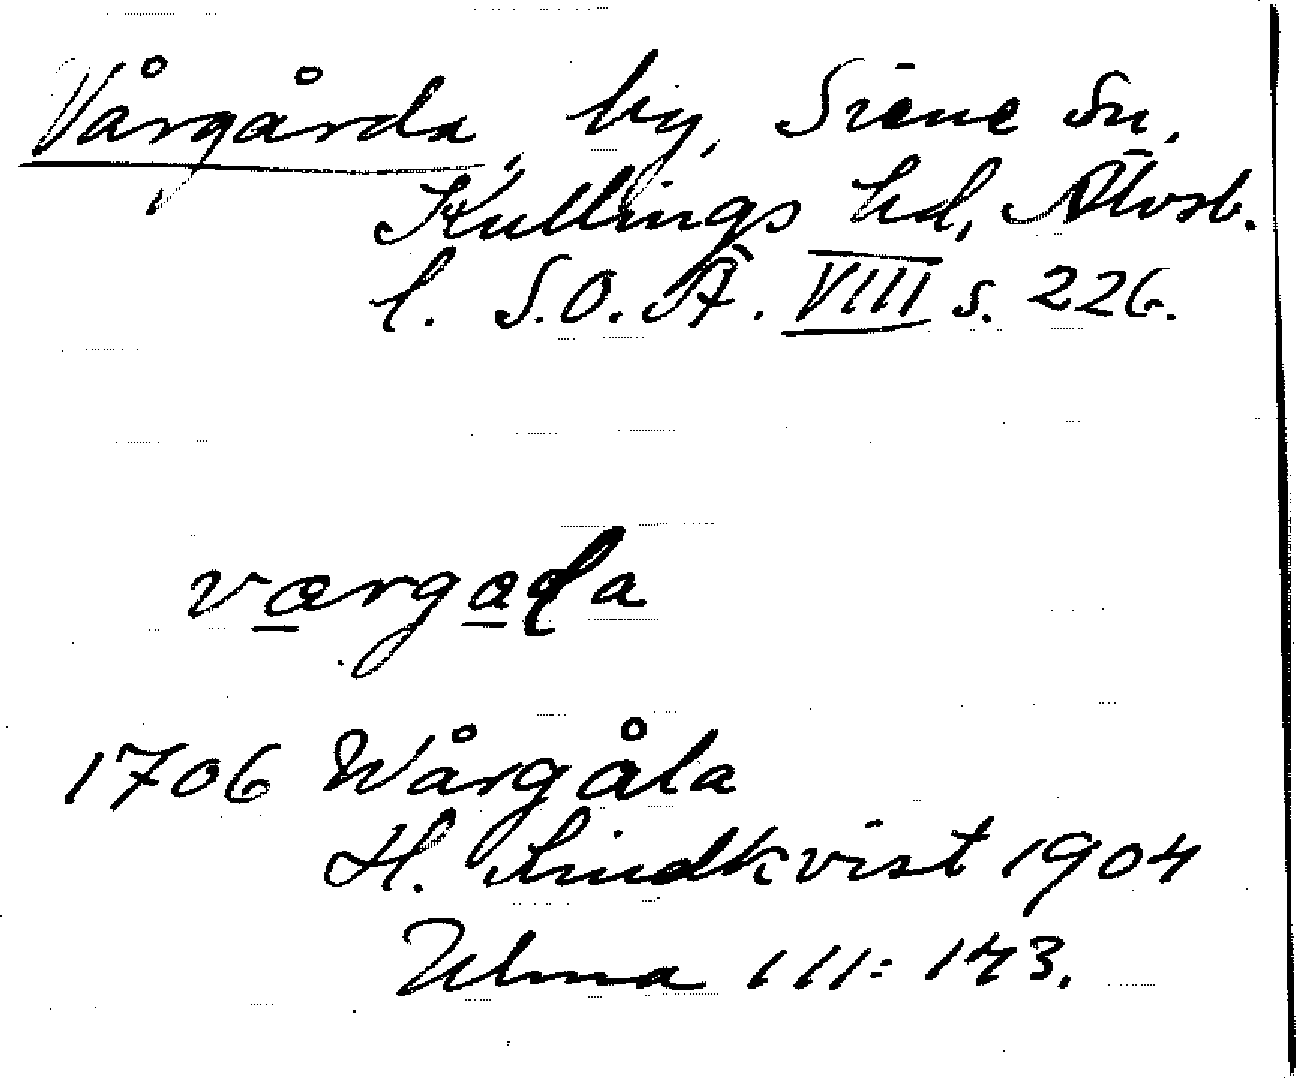 Vårgårda, by, Siene sn,
Kullings hd, Älvsb.
l. S.O.Ä. VIII s. 226.
værgaḍa
1706 Wårgåla
H. Lindkvist 1904
Ulma 111:143.